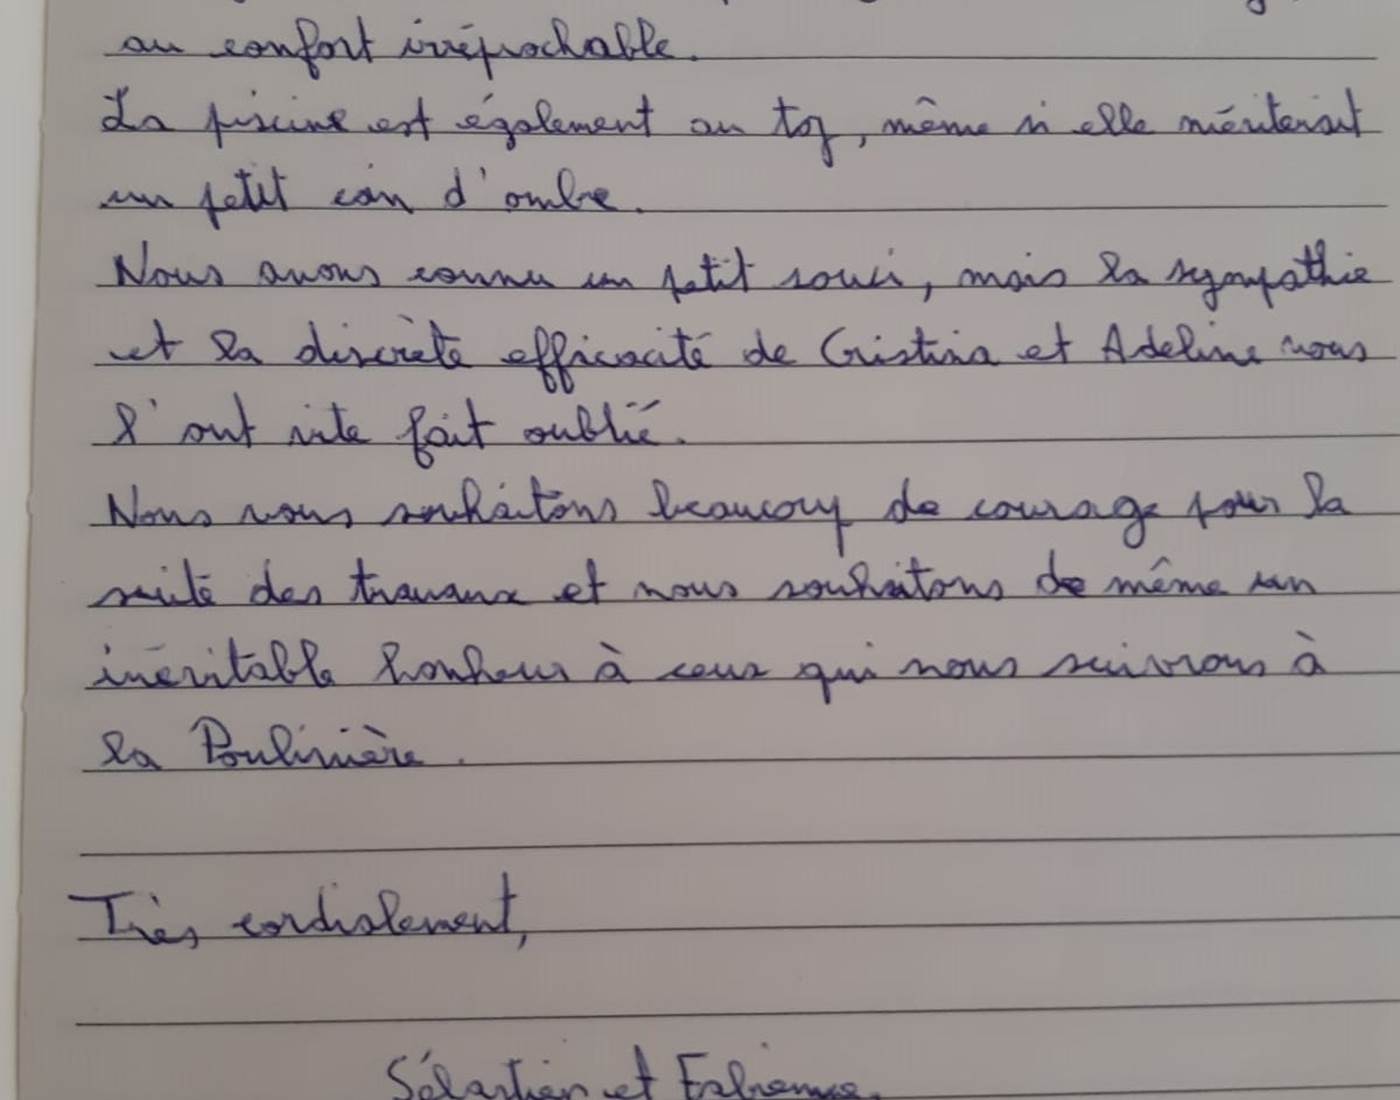 au confort irréprochable.
La piscine est également au top, même si elle mériterait
un petit coin d'ombre.
Nous avons connu un petit souci, mais la sympathie
et la discrète efficacité de Cristina et Adeline nous
l'ont vite fait oublié.
Nous vous souhaitons beaucoup de courage pour la
suite des travaux et nous souhaitons de même un
inéritable bonheur à ceux qui nous suivrons à
la Poulinière.
Très cordialement,
Sébastien et Fabienne.